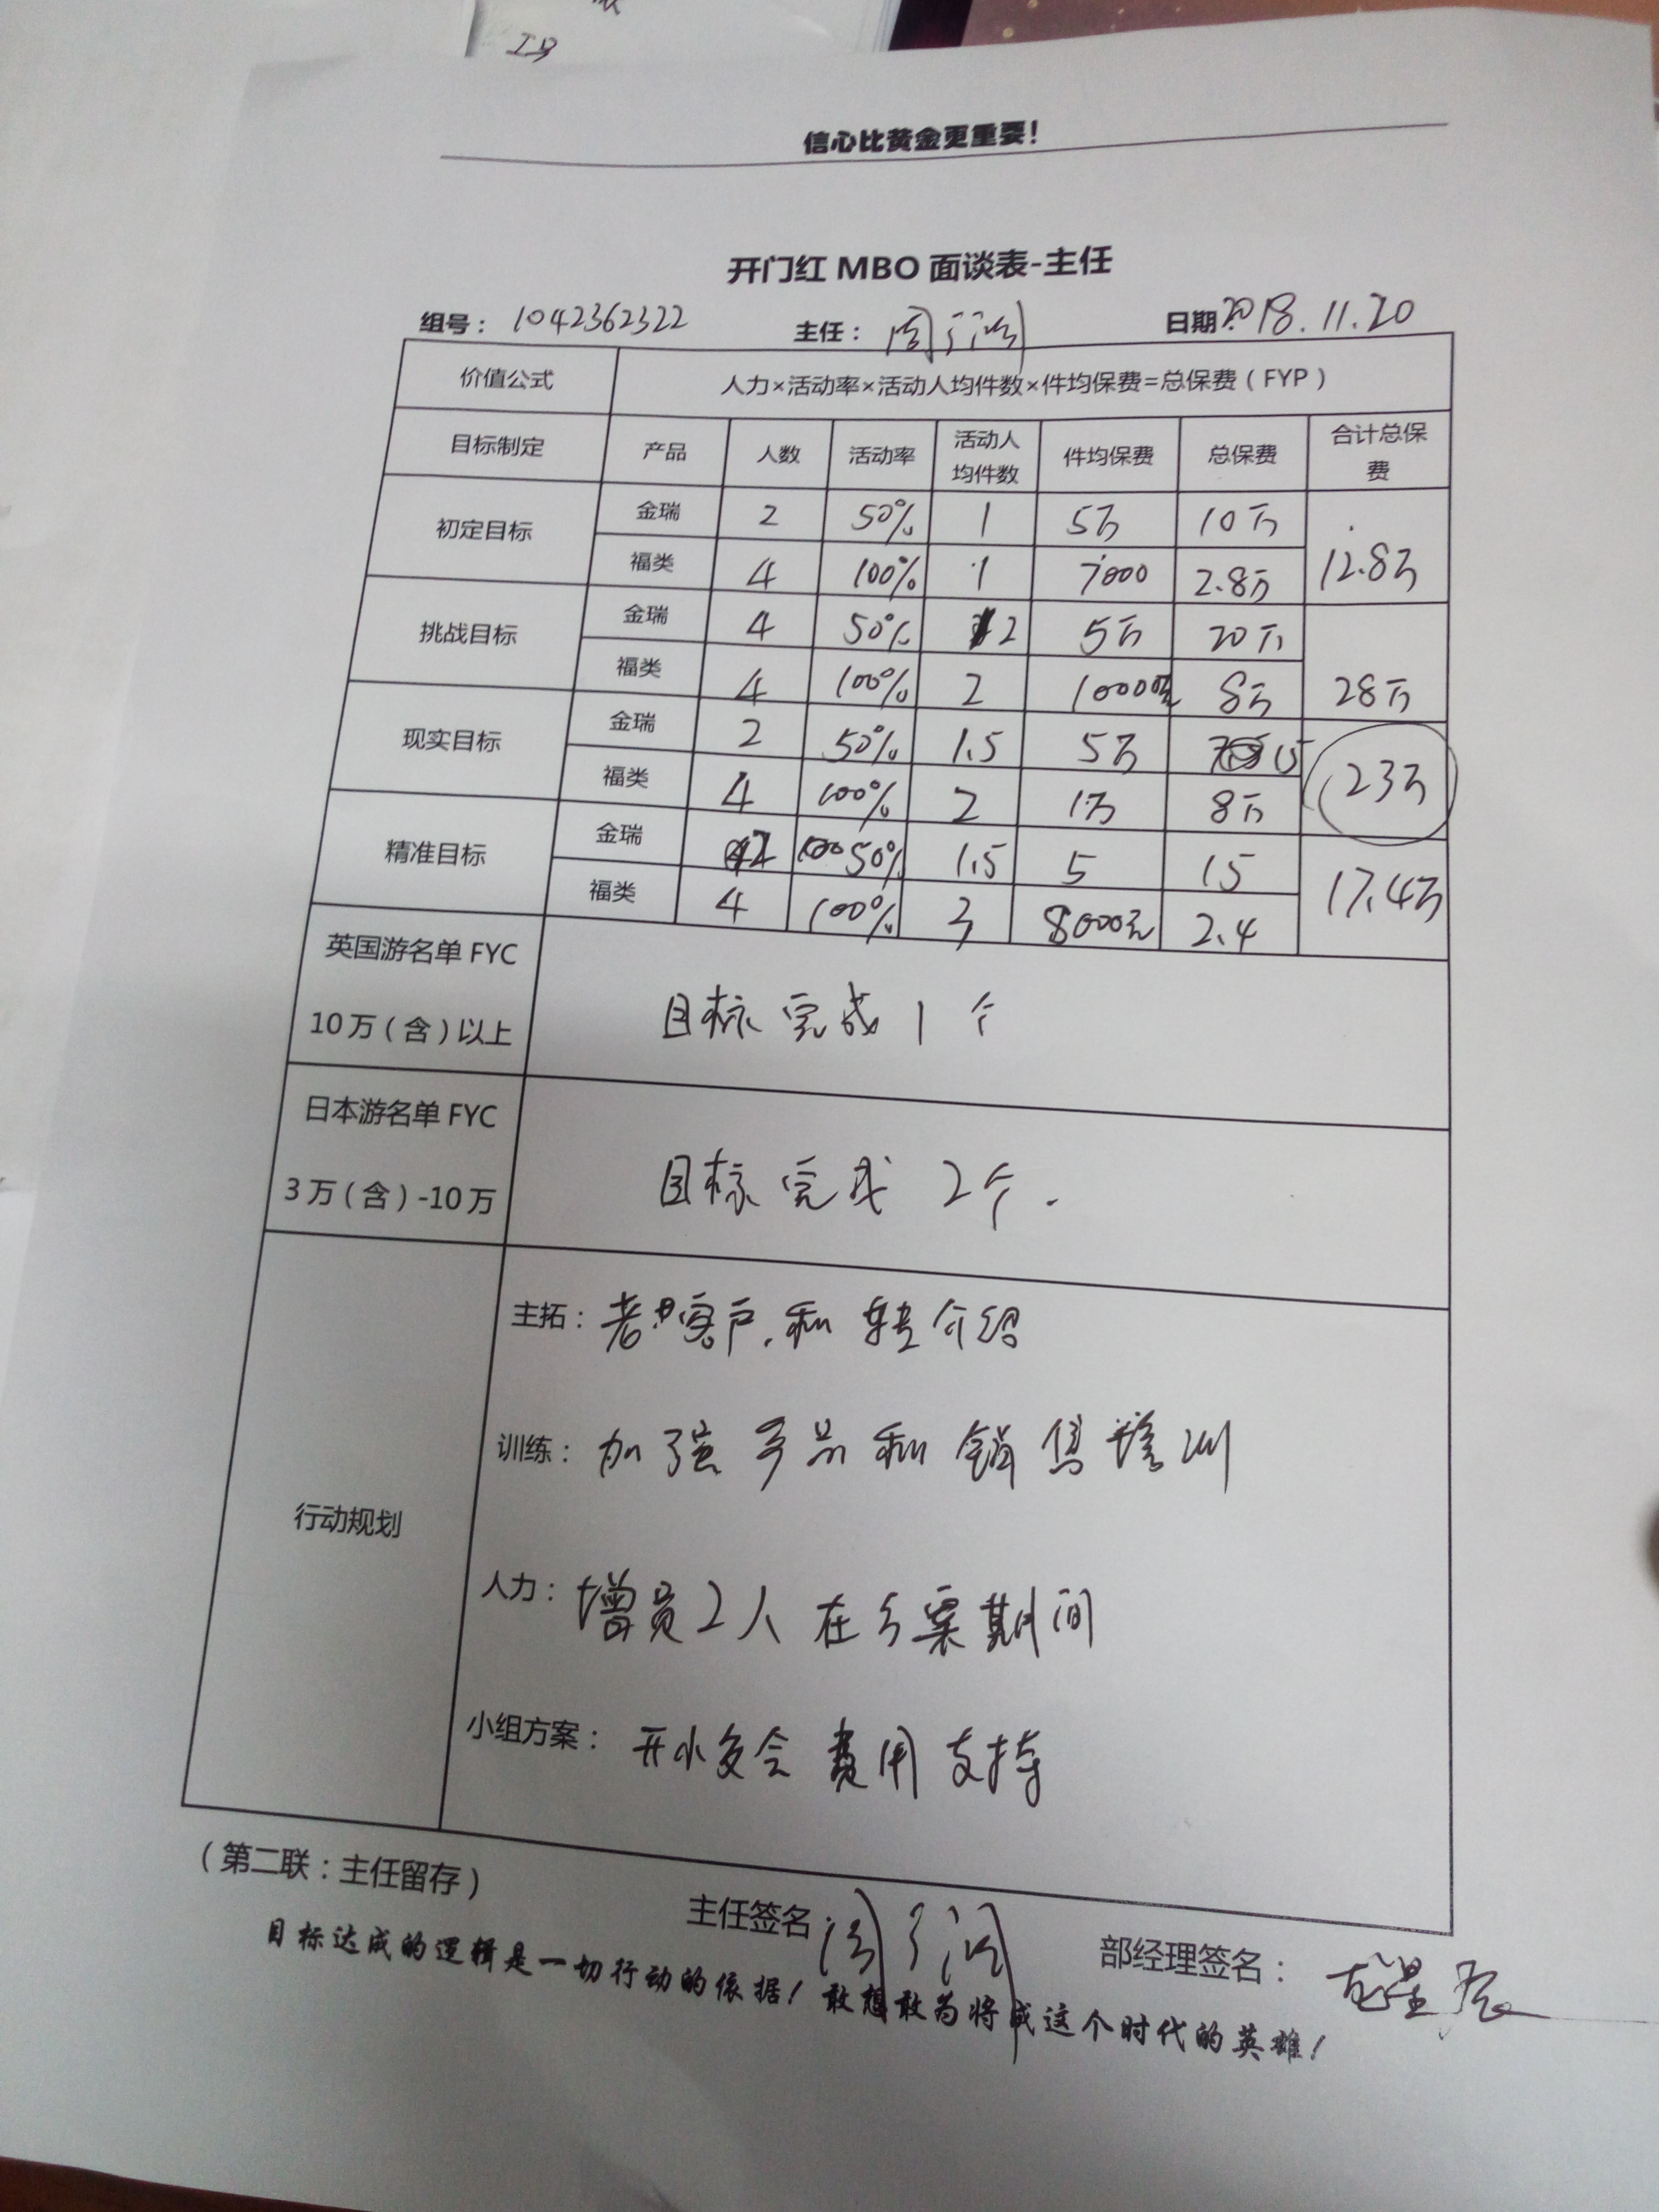 信心比黄金更重要！
开门红 MBO 面谈表-主任
组号： 1042362322 主任： 日期： 2018.11.20
价值公式 人力×活动率×活动人均件数×件均保费=总保费（FYP）
目标制定 产品 人数 活动率 活动人均件数 件均保费 总保费 合计总保费
初定目标 金瑞 2 50% 1 5万 10万 12.8万
福类 4 100% 1 7000 2.8万
挑战目标 金瑞 4 50% 2 5万 20万 28万
福类 4 100% 2 10000元 8万
现实目标 金瑞 2 50% 1.5 5万 15 23万
福类 4 100% 2 1万 8万
精准目标 金瑞 2 50% 1.5 5 15 17.4万
福类 4 100% 3 8000元 2.4
英国游名单 FYC
10万（含）以上
目标完成1个
日本游名单 FYC
3万（含）-10万
目标完成 2个.
行动规划
主拓：老客户.和转介绍
训练：加强产品和销售培训
人力：增员2人在方案期间
小组方案：开小交会费用支持
（第二联：主任留存）
主任签名： 部经理签名：
目标达成的逻辑是一切行动的依据！敢想敢为将成这个时代的英雄！